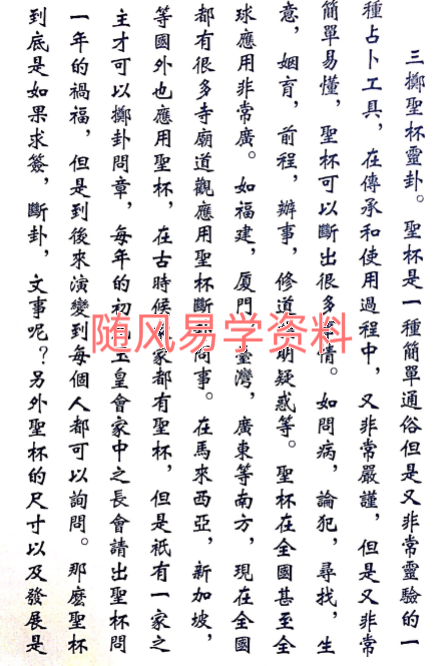 三擲聖杯靈卦。聖杯是一種簡單通俗但是又非常靈驗的一
種占卜工具，在傳承和使用過程中，又非常嚴謹，但是又非常
簡單易懂，聖杯可以斷出很多事情。如問病，論犯，尋找，生
意，姻育，前程，辦事，修道明疑惑等。聖杯在全國甚至全
球應用非常廣。如福建，廈門，臺灣，廣東等南方，現在全國
都有很多寺廟道觀應用聖杯斷卦問事。在馬來西亞，新加坡，
等國外也應用聖杯，在古時候家都有聖杯，但是祇有一家之
主才可以擲卦問章，每年的初玉皇會家中之長會請出聖杯問
一年的禍福，但是到後來演變到每個人都可以詢問。那麼聖杯
到底是如果求簽，斷卦，文事呢？另外聖杯的尺寸以及發展是
随风易学资料